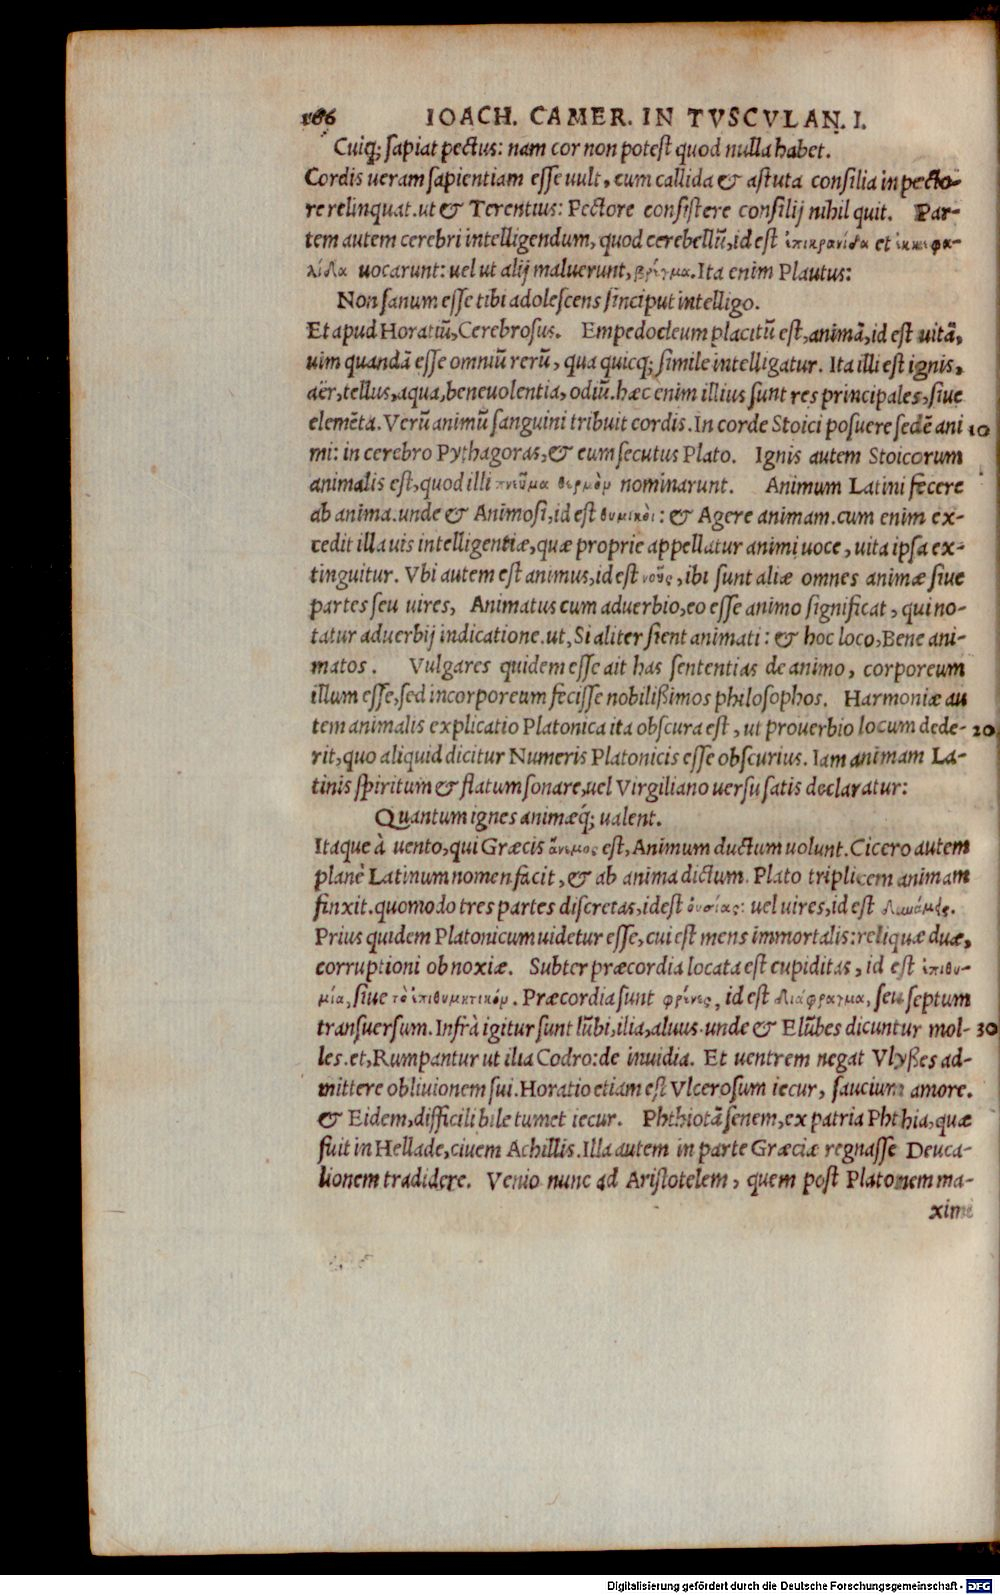 166 IOACH. CAMER. IN TVSCVLAN. I.
Cuiq; sapiat pectus: nam cor non potest quod nulla habet.
Cordis ueram sapientiam esse uult, cum callida & astuta consilia in pecto-
re relinquat. ut & Terentius: Pectore consistere consilij nihil quit. Par-
tem autem cerebri intelligendum, quod cerebellũ, id est ἐπικρανίδα et ἐκκεφα-
λίδα uocarunt: uel ut alij maluerunt, βρέγμα. Ita enim Plautus:
Non sanum esse tibi adolescens sinciput intelligo.
Et apud Horatiũ, Cerebrosus. Empedocleum placitũ est, animã, id est uitã,
uim quandã esse omniũ rerũ, qua quicq; simile intelligatur. Ita illi est ignis,
aër, tellus, aqua, beneuolentia, odiũ. hæc enim illius sunt res principales, siue
elemẽta. Verũ animũ sanguini tribuit cordis. In corde Stoici posuere sedẽ ani 10
mi: in cerebro Pythagoras, & eum secutus Plato. Ignis autem Stoicorum
animalis est, quod illi πνεῦμα θερμὸν nominarunt. Animum Latini fecere
ab anima. unde & Animosi, id est θυμικοὶ: & Agere animam. cum enim ex-
cedit illa uis intelligentiæ, quæ proprie appellatur animi uoce, uita ipsa ex-
tinguitur. Vbi autem est animus, id est νοῦς, ibi sunt aliæ omnes animæ siue
partes seu uires, Animatus cum aduerbio, eo esse animo significat, qui no-
tatur aduerbij indicatione. ut, Si aliter sient animati: & hoc loco, Bene ani-
matos. Vulgares quidem esse ait has sententias de animo, corporeum
illum esse, sed incorporeum fecisse nobilißimos philosophos. Harmoniæ au
tem animalis explicatio Platonica ita obscura est, ut prouerbio locum dede- 20
rit, quo aliquid dicitur Numeris Platonicis esse obscurius. Iam animam La-
tinis spiritum & flatum sonare, uel Virgiliano uersu satis declaratur:
Quantum ignes animæq́; ualent.
Itaque à uento, qui Græcis ἄνεμος est, Animum ductum uolunt. Cicero autem
planè Latinum nomen facit, & ab anima dictum. Plato triplicem animam
finxit. quomodo tres partes discretas, id est οὐσίας: uel uires, id est δυνάμεις.
Prius quidem Platonicum uidetur esse, cui est mens immortalis: reliquæ duæ,
corruptioni obnoxiæ. Subter præcordia locata est cupiditas, id est ἐπιθυ-
μία, siue τὸ ἐπιθυμητικόν. Præcordia sunt φρένες, id est διάφραγμα, seu septum
transuersum. Infrà igitur sunt lũbi, ilia, aluus. unde & Elũbes dicuntur mol- 30
les. et, Rumpantur ut ilia Codro: de inuidia. Et uentrem negat Vlyßes ad-
mittere obliuionem sui. Horatio etiam est Vlcerosum iecur, saucium amore.
& Eidem, difficili bile tumet iecur. Phthiotã senem, ex patria Phthia, quæ
fuit in Hellade, ciuem Achillis. Illa autem in parte Græciæ regnasse Deuca-
lionem tradidere. Venio nunc ad Aristotelem, quem post Platonem ma-
xime
Digitalisierung gefördert durch die Deutsche Forschungsgemeinschaft - DFG